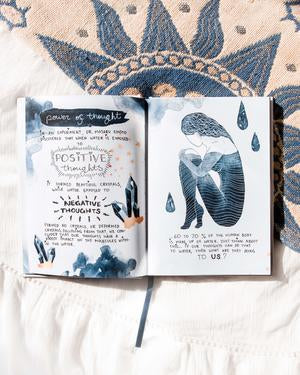 power of thought
IN AN EXPERIMENT, DR. MASARU EMOTO
DISCOVERED THAT WHEN WATER IS EXPOSED
TO
POSITIVE
thoughts
IT FORMED BEAUTIFUL CRYSTALS,
WHILE WATER EXPOSED TO
NEGATIVE
THOUGHTS
FORMED NO CRYSTALS, OR DEFORMED
CRYSTALS. FROM THAT, WE CAN
THAT OUR THOUGHTS HAVE A
IMPACT ON THE MOLECULES WITH-
IN THE WATER.
60 TO 70 % OF THE HUMAN BODY
IS MADE UP OF WATER. JUST THINK ABOUT
THIS... IF OUR THOUGHTS CAN DO THAT
TO WATER, THEN WHAT ARE THEY DOING
TO US?